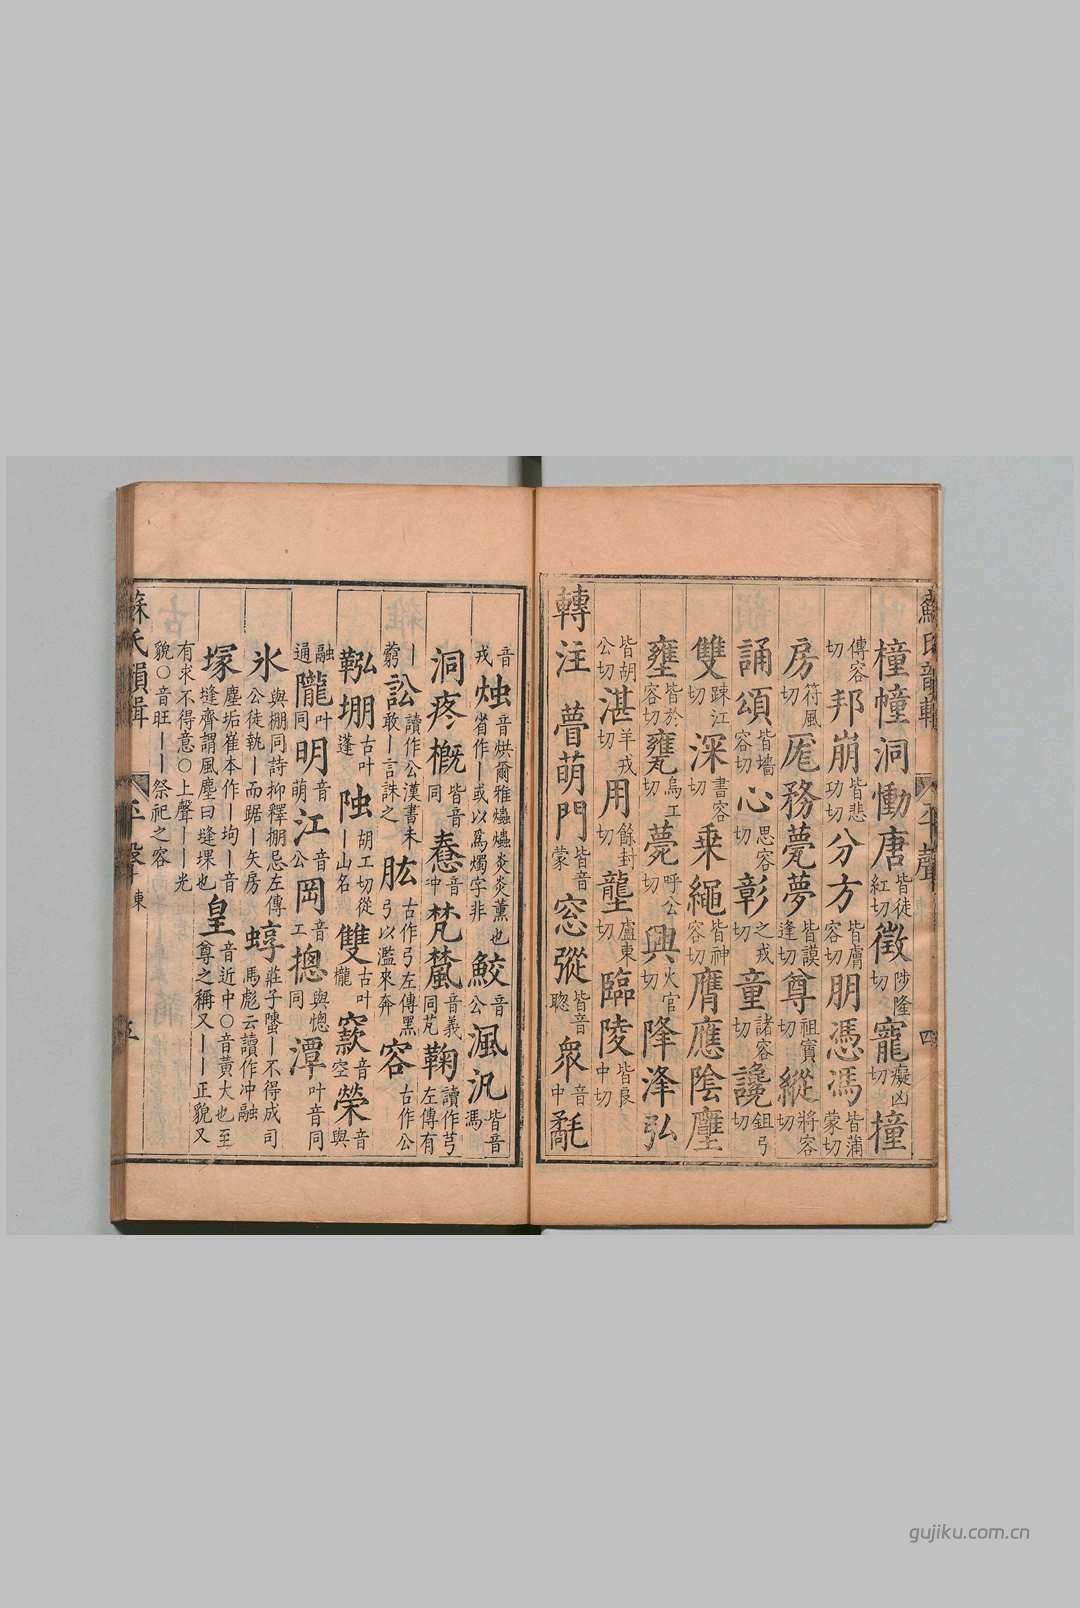 蘇氏韻輯 上平聲 四
橦幢洞慟唐皆徒紅切徵陟隆切寵癡凶切撞
傳容切邦崩皆悲功切分方皆膚容切朋憑馮皆蒲蒙切
房符風切厖務薨夢皆謨逢切尊祖賨切縱將容切
誦頌皆墻容切心思容切彰之戎切童諸容切讒鉏弓切
雙踈江切深書容切乗繩皆神容切膺應陰廛
壅皆於容切甕烏工切薨呼公切興火宫切降浲弘
皆胡公切湛羊戎切用餘封切壟盧東切臨陵皆良中切
轉注 瞢萌門皆音蒙窓摐皆音聦衆音中
音戎烛音烘爾雅爞爞炎炎薰也省作丨或以爲燭字非鮫音公渢汎皆音馮
洞疼槪皆音同憃音冲梵檒音義同芃鞠讀作芎左傳有
丨藭訟讀作公漢書未敢丨言誅之肱古作弓左傳黑弓以濫來奔容古作公
鞃堋古叶蓬䧆胡工切從丨山名雙古叶櫳窾音空榮音與
融通隴叶同明音萌江音公岡音工揔與怱同潭叶音同
氷與掤同詩抑釋掤忌左傳公徒執丨而踞丨矢房蜳莊子螴丨不得成司馬彪云讀作冲融
塚塵垢崔本作丨坸丨音逢齊謂風塵曰塳堁也皇音近中○音黄大也至尊之稱又丨丨正貌又
有求不得意○上聲丨丨光貌○音旺丨丨祭祀之容
蘇氏韻輯 上平聲 東 五